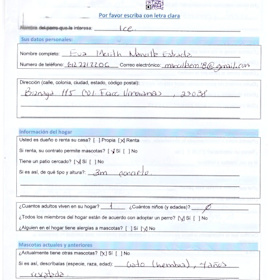 Por favor escriba con letra clara
Nombre del perro que le interesa: Ice
Sus datos personales:
Nombre completo: Eva
Número de teléfono: Correo electrónico:
Dirección (calle, colonia, ciudad, estado, código postal):
Información del hogar
Usted es dueño o renta su casa? [ ] Propia [X] Renta
Si renta, su contrato permite mascotas? [√] Sí [ ] No
Tiene un patio cercado? [√] Sí [ ] No
Si es así, de qué tipo y altura? 3m
¿Cuántos adultos viven en su hogar? 1 ¿Cuántos niños (y edades)?
¿Todos los miembros del hogar están de acuerdo con adoptar un perro? [√] Sí [ ] No
¿Alguien en el hogar tiene alergias a mascotas? [ ] Sí [√] No
Mascotas actuales y anteriores
¿Actualmente tiene otras mascotas? [X] Sí [ ] No
Si es así, descríbalas (especie, raza, edad): Gato (hembra), 4 años